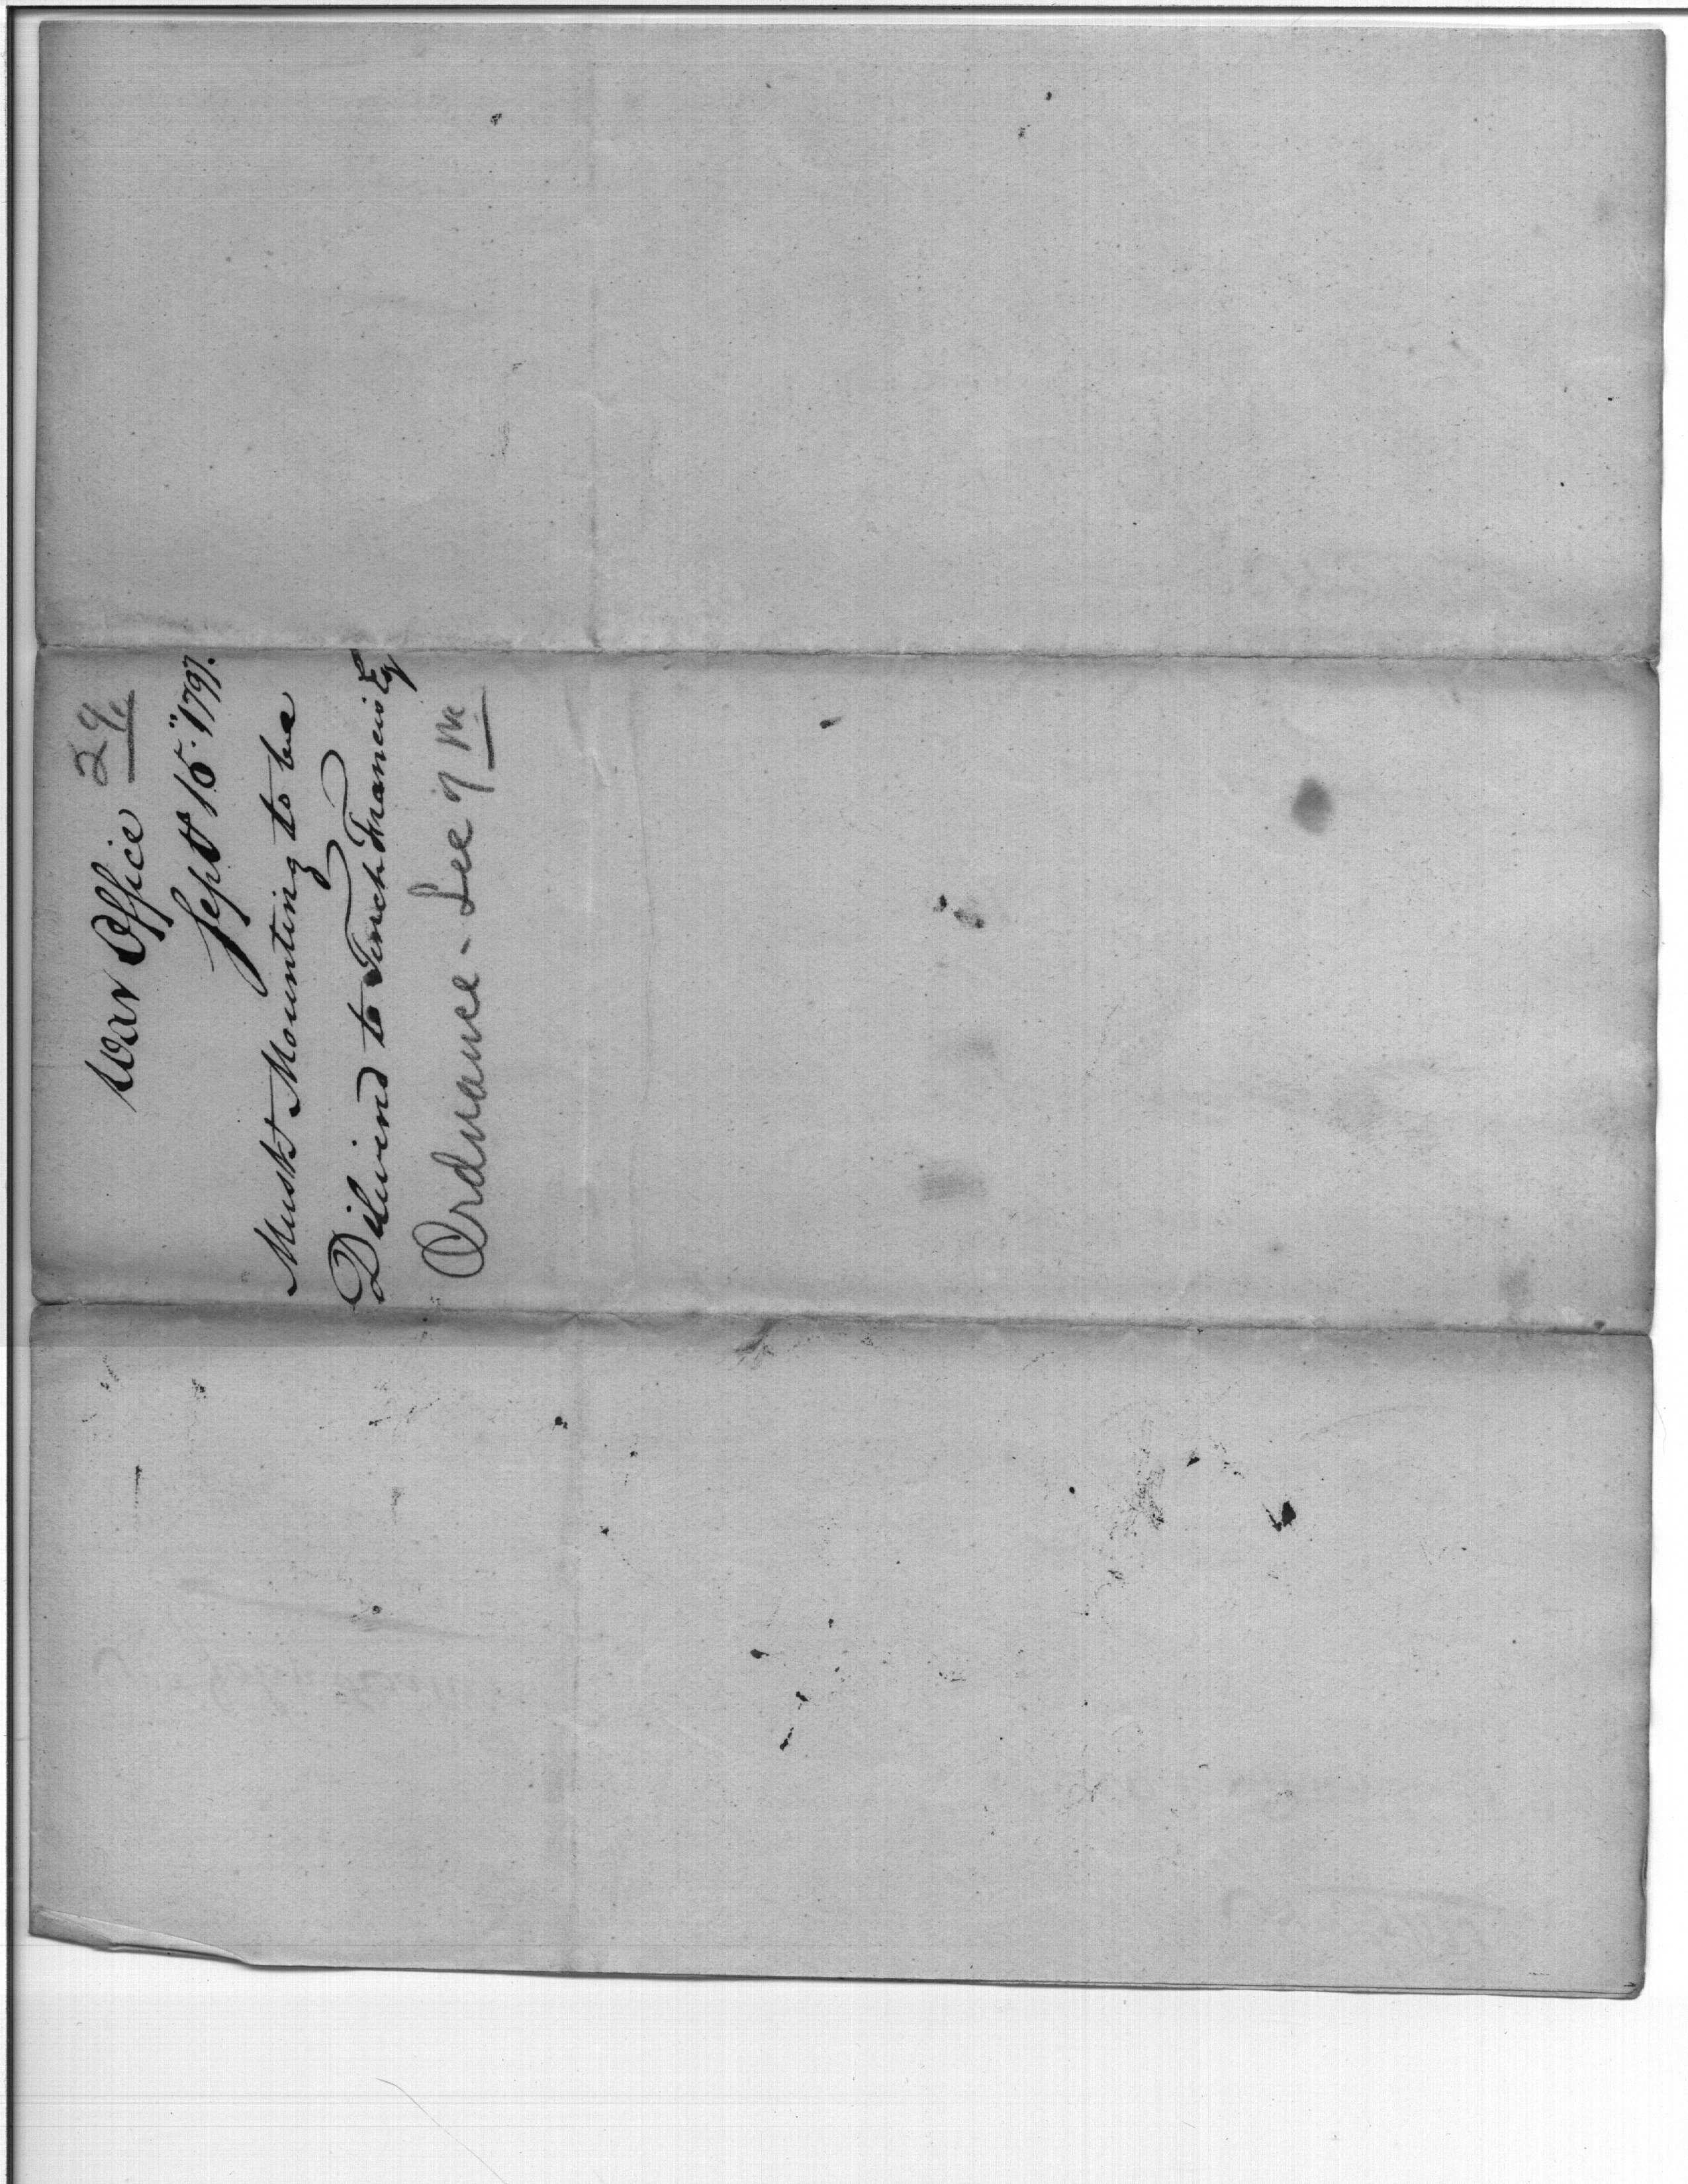 War Office 29
Sept 15" 1797.
Muskt Mounting to be
Deliverd to Tench Francis Esq
Ordnance - See 9 M